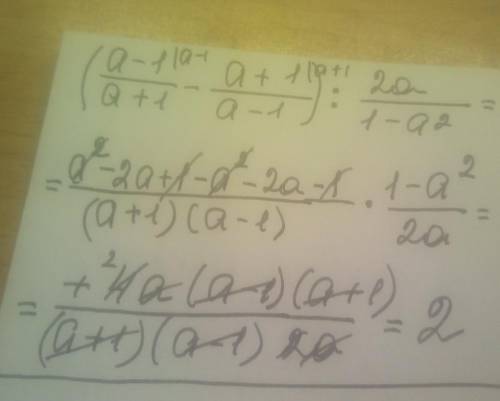 (a-1|a-1 / a+1 - a+1|a+1 / a-1) : 2a / 1-a2 =
= a²-2a+1-a²-2a-1 / (a+1)(a-1) · 1-a² / 2a =
= +²4a(a-1)(a+1) / (a+1)(a-1)2a = 2